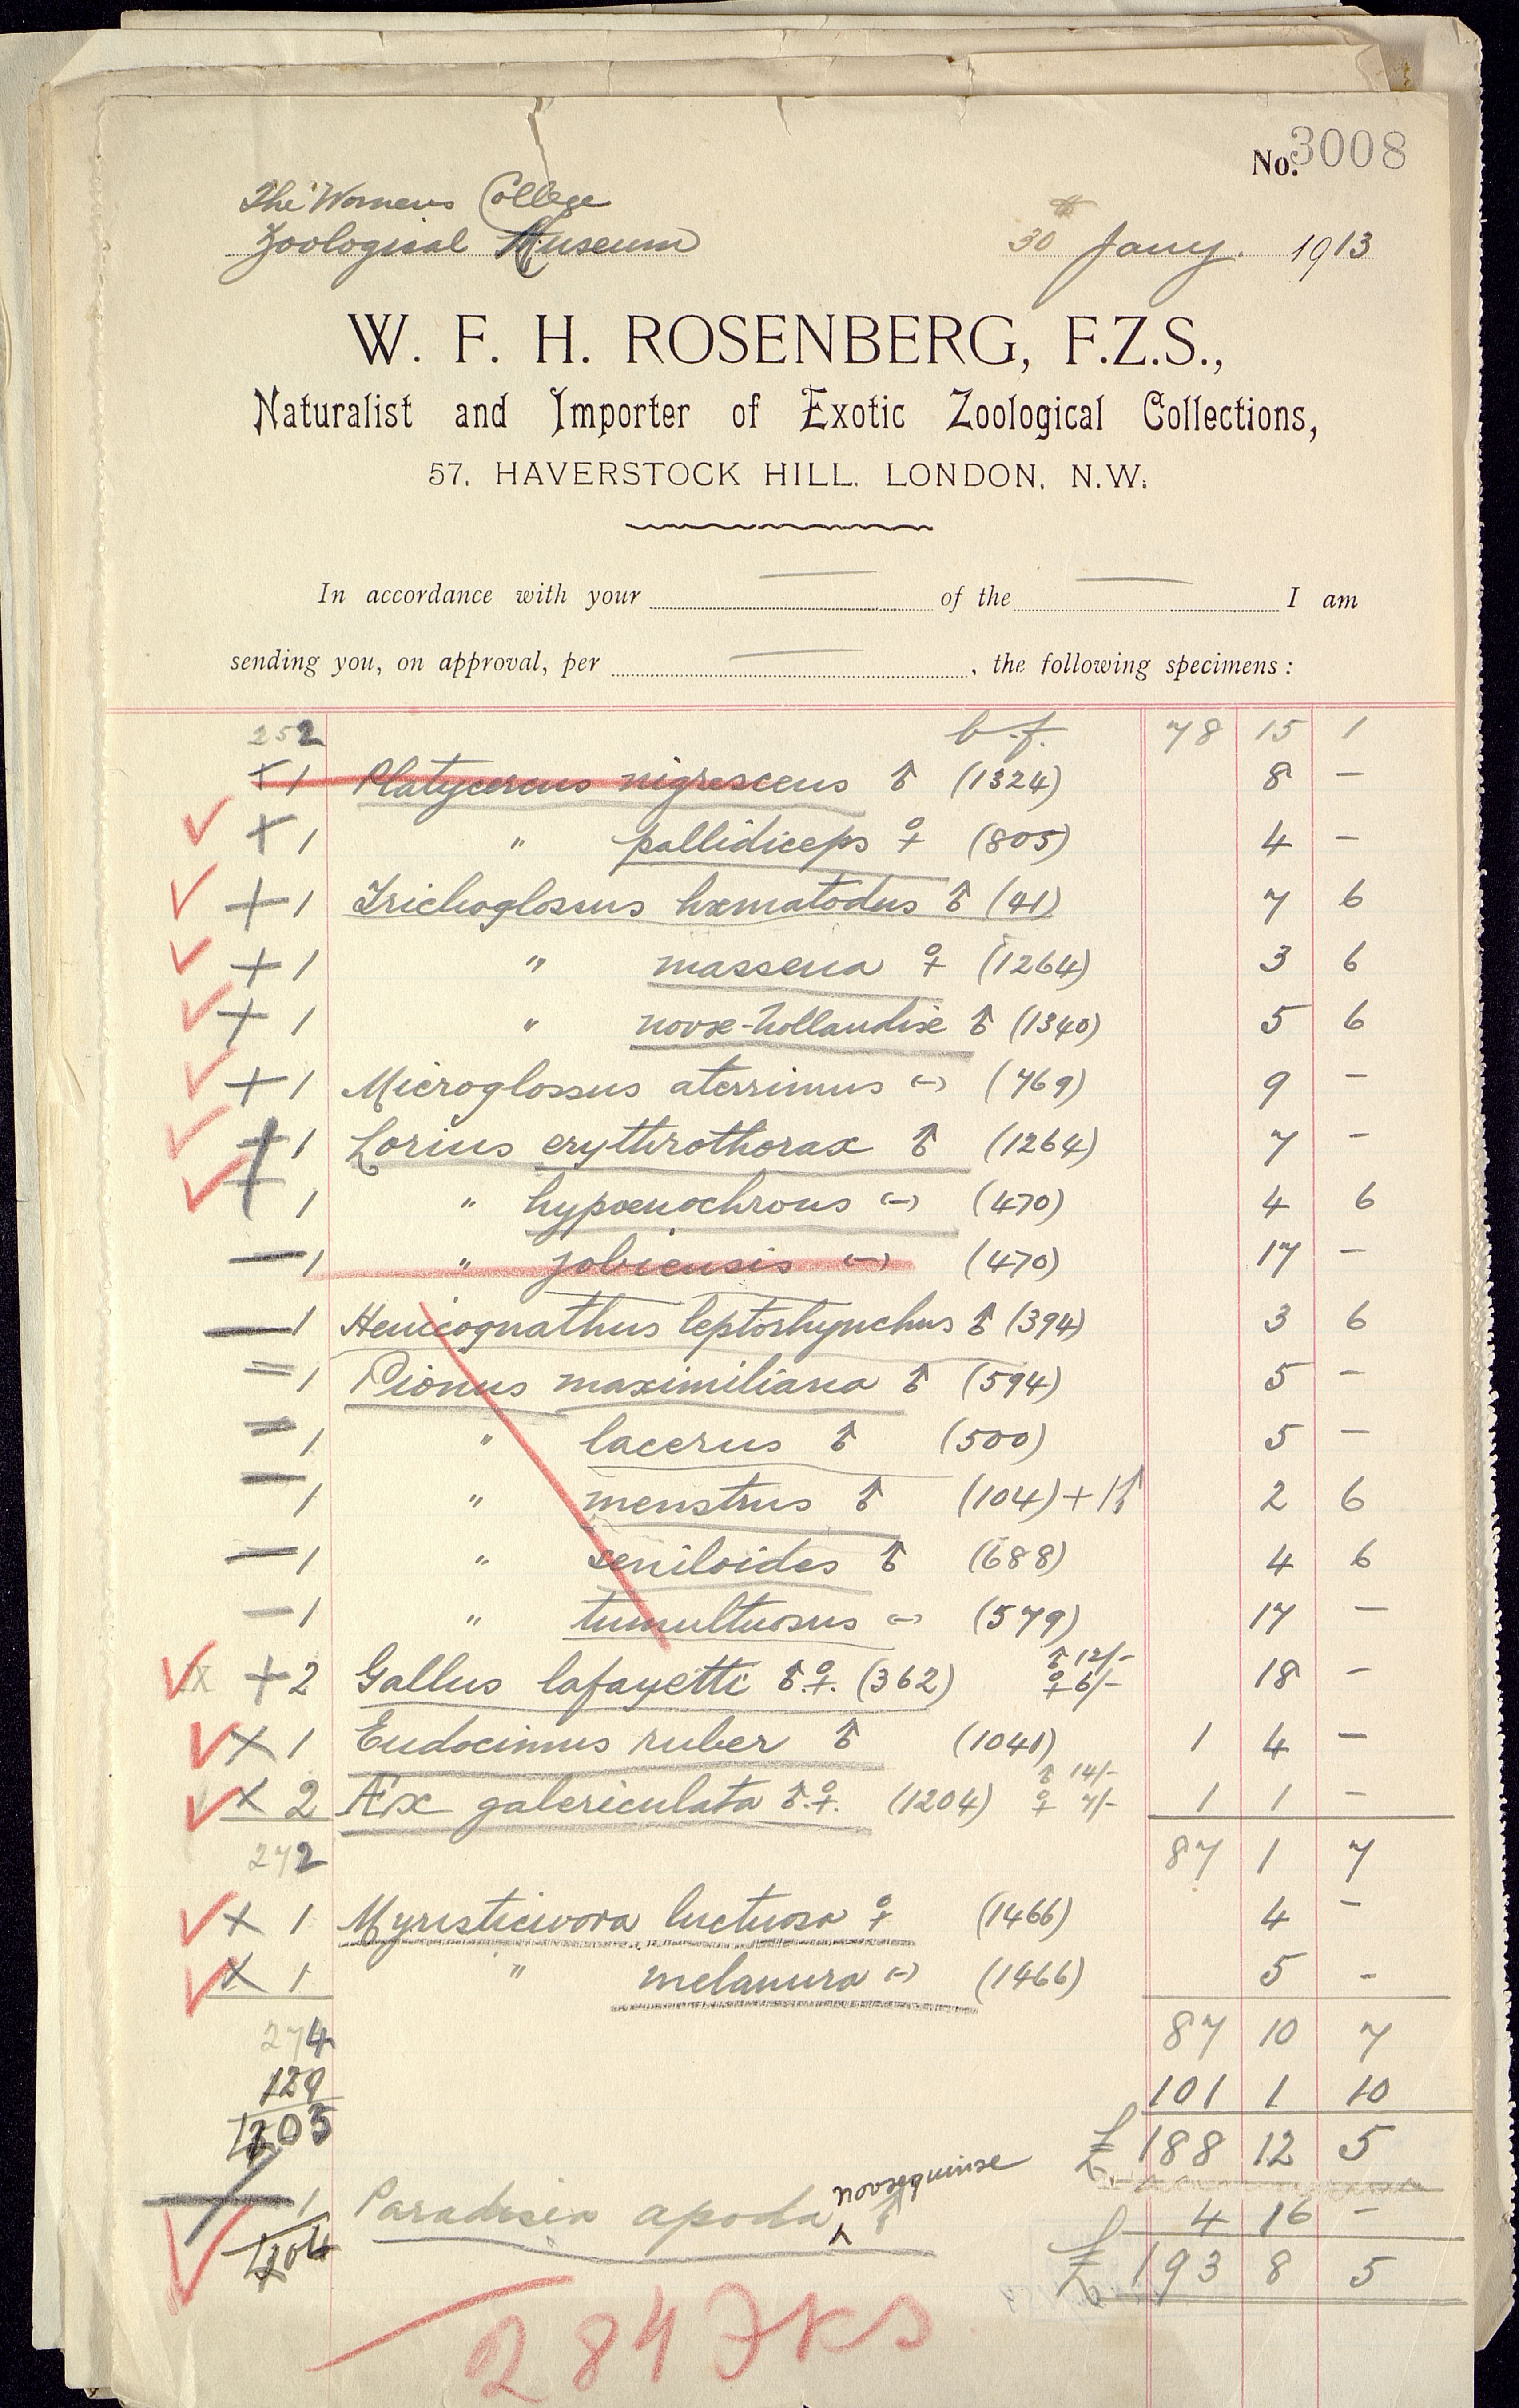 No. 3008
The Womens College
Zoological Museum
30th Jany. 1913
W. F. H. ROSENBERG, F.Z.S.,
Naturalist and Importer of Exotic Zoological Collections,
57, HAVERSTOCK HILL, LONDON, N.W.
In accordance with your — of the — I am
sending you, on approval, per — , the following specimens:
252 b.f. 78 15 1
+ 1 Platycercus nigrescens ♂ (1324) 8 –
✓ + 1 " pallidiceps ♀ (805) 4 –
✓ + 1 Trichoglossus hæmatodus ♂ (41) 7 6
✓ + 1 " massena ♀ (1264) 3 6
✓ + 1 " novæ-hollandiæ ♂ (1340) 5 6
✓ + 1 Microglossus aterrimus (–) (769) 9 –
✓ + 1 Lorius erythrothorax ♂ (1264) 7 –
✓ + 1 " hypœnochrous (–) (470) 4 6
— 1 " jobiensis (–) (470) 17 –
— 1 Henicognathus leptorhynchus ♂ (394) 3 6
= 1 Pionus maximiliana ♂ (594) 5 –
= 1 " lacerus ♂ (500) 5 –
= 1 " menstrus ♂ (104) + 1♂ 2 6
— 1 " seniloides ♂ (688) 4 6
— 1 " tumultuosus (–) (579) 17 –
✓ + 2 Gallus lafayetti ♂♀. (362) ♂ 12/- ♀ 6/- 18 –
✓ × 1 Eudocimus ruber ♂ (1041) 1 4 –
✓ × 2 Æx galericulata ♂.♀. (1204) ♂ 14/- ♀ 7/- 1 1 –
272 87 1 7
✓ × 1 Myristicivora luctuosa ♀ (1466) 4 –
✓ × 1 " melanura (–) (1466) 5 –
274 87 10 7
129 101 1 10
£ 188 12 5
1 Paradisea apoda novæguinæ ♂ 4 16 –
£ 193 8 5
284